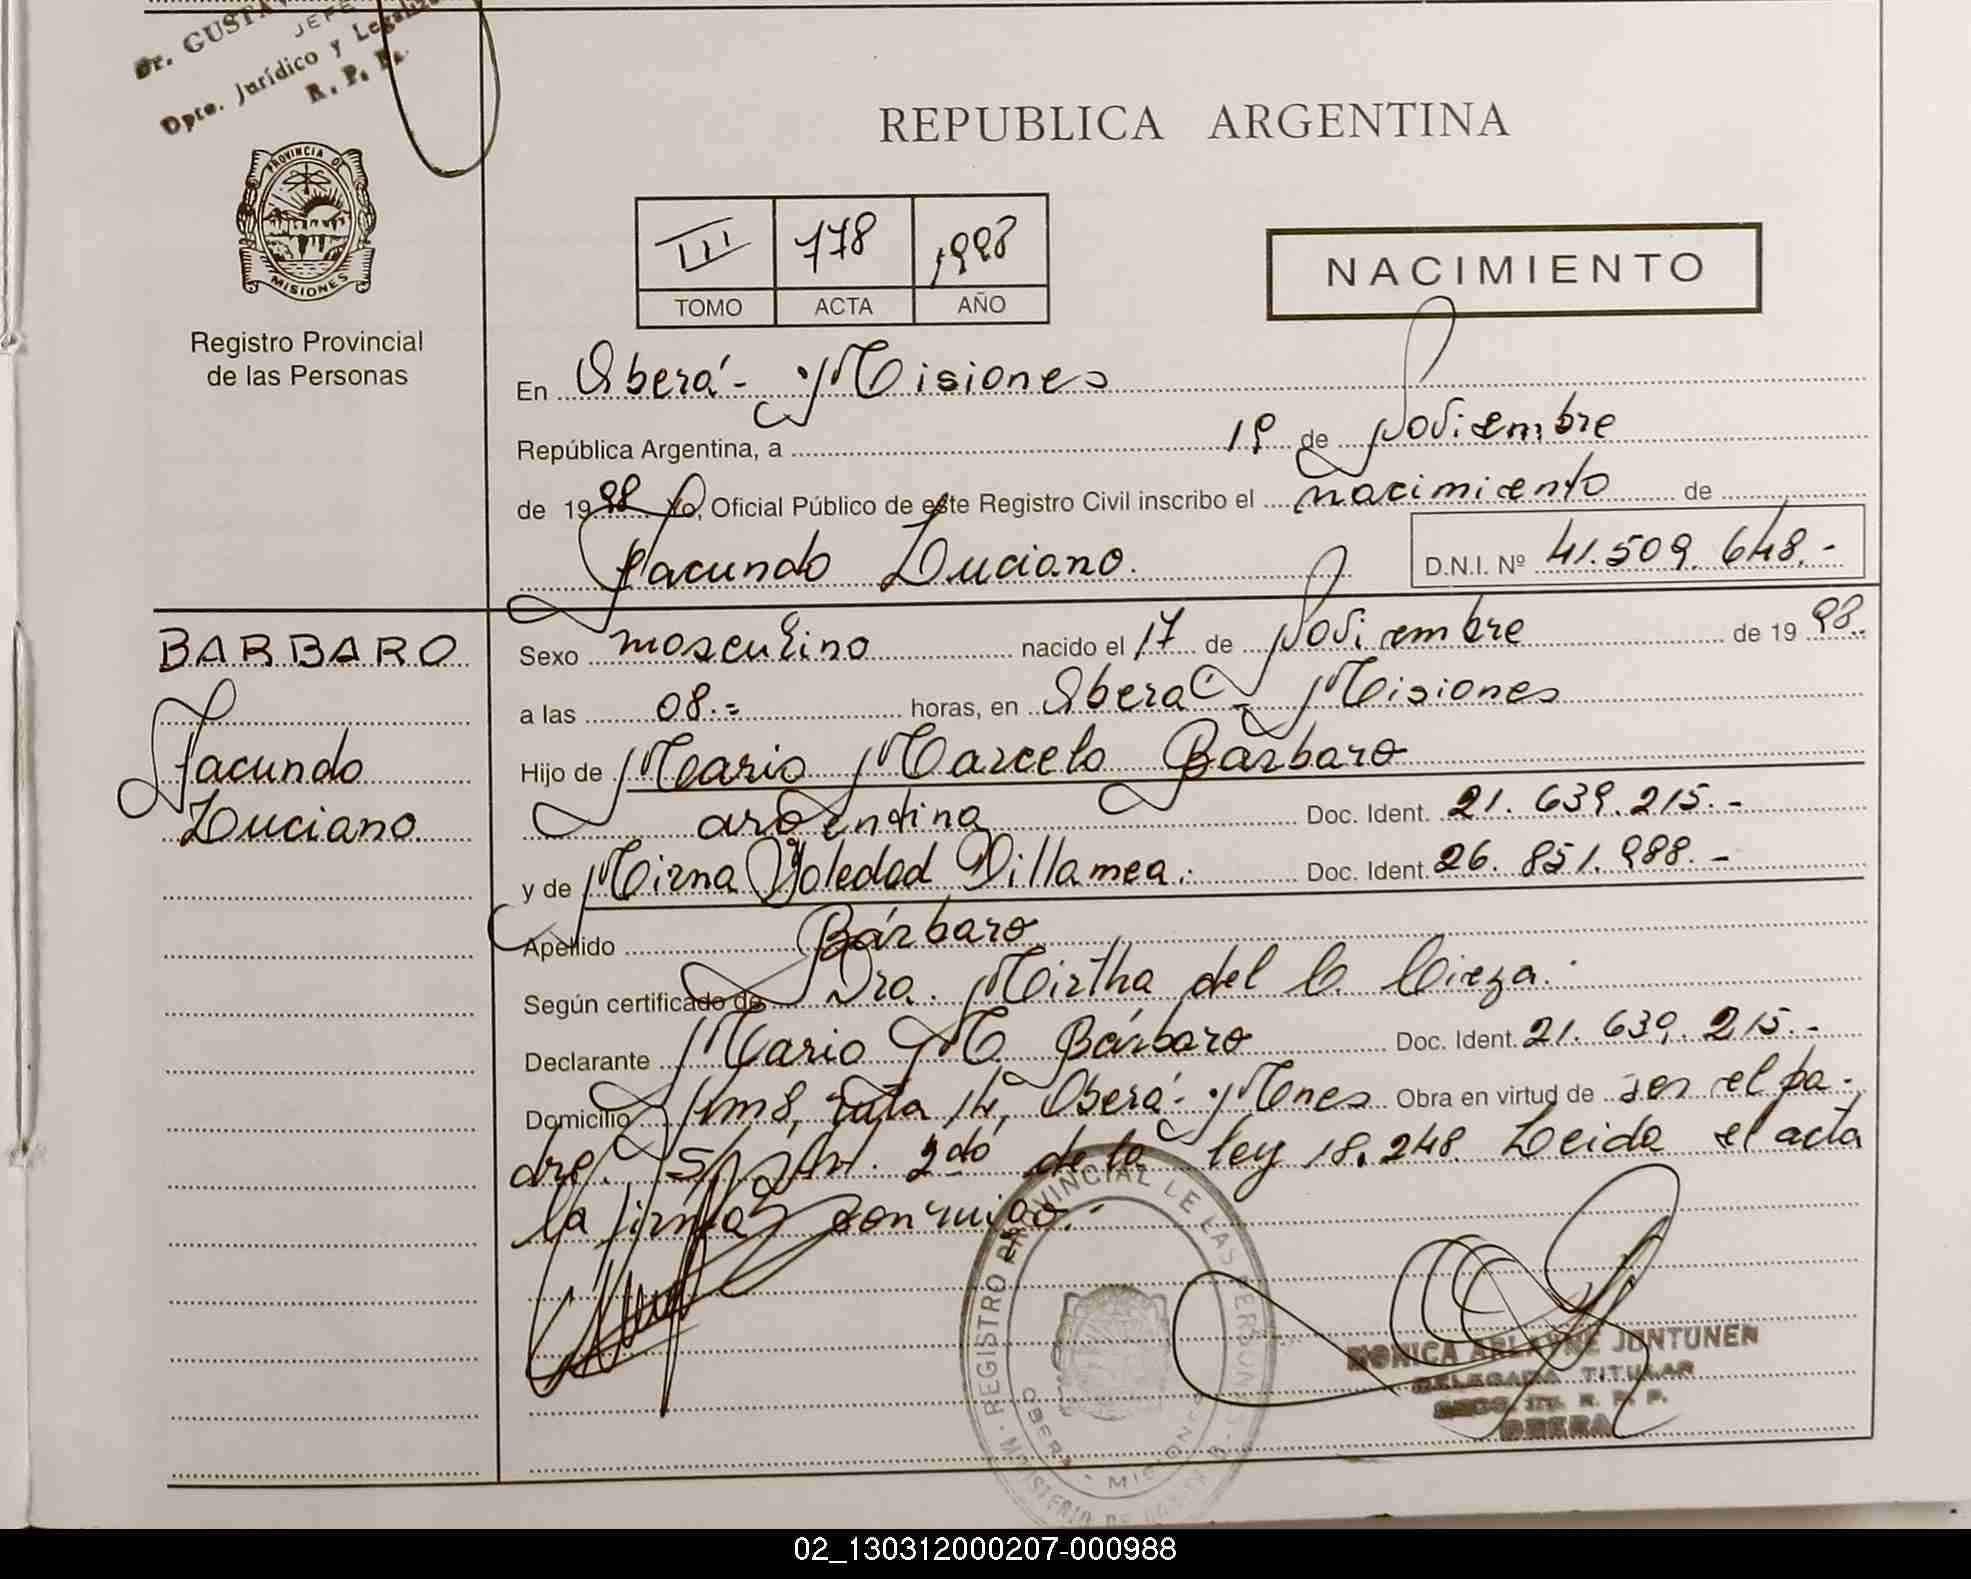 Dr. GUSTA
JEFE
Dpto. Jurídico y Legaliz
R. P. P.
PROVINCIA DE
MISIONES
Registro Provincial
de las Personas
REPUBLICA ARGENTINA
III 778 1998
TOMO ACTA AÑO
NACIMIENTO
En Oberá - Misiones
República Argentina, a 19 de Noviembre
de 1998 Yo, Oficial Público de este Registro Civil inscribo el nacimiento de
Facundo Luciano. D.N.I. Nº 41.509.648.-
BARBARO
Facundo
Luciano
Sexo masculino nacido el 17 de Noviembre de 1998.
a las 08.= horas, en Oberá - Misiones
Hijo de Mario Marcelo Bárbaro
argentina Doc. Ident. 21.639.215.-
y de Mirna Soledad Villamea. Doc. Ident. 26.851.988.-
Apellido Bárbaro
Según certificado de Dra. Mirtha del C. Cieza.
Declarante Mario M. Bárbaro Doc. Ident. 21.639.215.-
Domicilio Km 8, ruta 14, Oberá - Mnes Obra en virtud de ser el pa-
dre. 2do de la ley 18.248. Leida el acta
la firma conmigo.-
REGISTRO PROVINCIAL DE LAS PERSONAS
OBERA - MISIONES
MINISTERIO DE
MONICA ARLAYNE JUNTUNEN
DELEGADA TITULAR
SECC. R. P. P.
OBERA
02_130312000207-000988